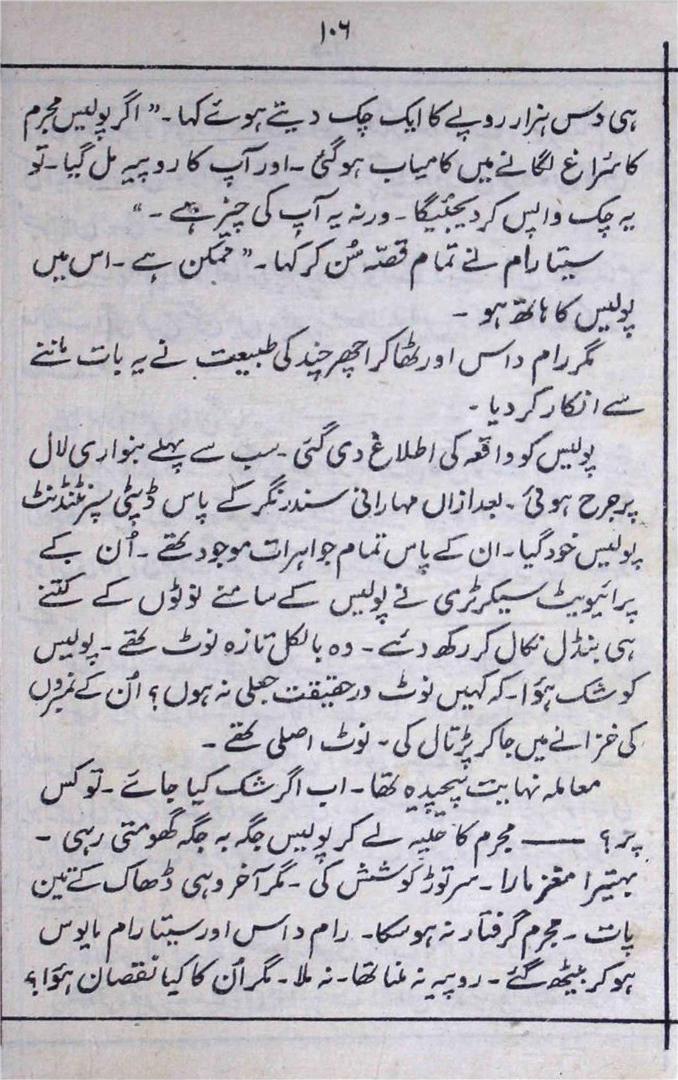 ۱۰۶
ہی دس ہزار روپے کا ایک چک دیتے ہوئے کہا۔ "اگر پولیس مجرم
کا سُراغ لگانے میں کامیاب ہوگئی۔ اور آپ کا روپیہ مل گیا۔ تو
یہ چک واپس کر دیجئیگا۔ ورنہ یہ آپ کی چیز ہے۔"
سیتا رام نے تمام قصّہ سُن کر کہا۔ "ممکن ہے۔ اس میں
پولیس کا ہاتھ ہو۔
مگر رام داس اور ٹھاکر اچھر چند کی طبیعت نے یہ بات ماننے
سے انکار کر دیا۔
پولیس کو واقعہ کی اطلاع دی گئی۔ سب سے پہلے بنواری لال
پر جرح ہوئی۔ بعد ازاں مہارانی سندر نگر کے پاس ڈپٹی سپرنٹنڈنٹ
پولیس خود گیا۔ ان کے پاس تمام جواہرات موجود تھے۔ اُن کے
پرائیویٹ سیکرٹری نے پولیس کے سامنے نوٹوں کے کتنے
ہی بنڈل نکال کر رکھ دئے۔ وہ بالکل تازہ نوٹ تھے۔ پولیس
کو شک ہؤا۔ کہ کہیں نوٹ درحقیقت جعلی نہ ہوں؟ اُن کے نمبروں
کی خزانے میں جا کر پڑتال کی۔ نوٹ اصلی تھے۔
معاملہ نہایت پیچیدہ تھا۔ اب اگر شک کیا جائے۔ تو کس
پر؟ —— مجرم کا حلیہ لے کر پولیس جگہ بہ جگہ گھومتی رہی۔
بہتیرا مغز مارا۔ سر توڑ کوشش کی۔ مگر آخر وہی ڈھاک کے تین
پات۔ مجرم گرفتار نہ ہو سکا۔ رام داس اور سیتا رام مایوس
ہو کر بیٹھ گئے۔ روپیہ نہ ملنا تھا۔ نہ ملا۔ مگر اُن کا کیا نقصان ہؤا؟